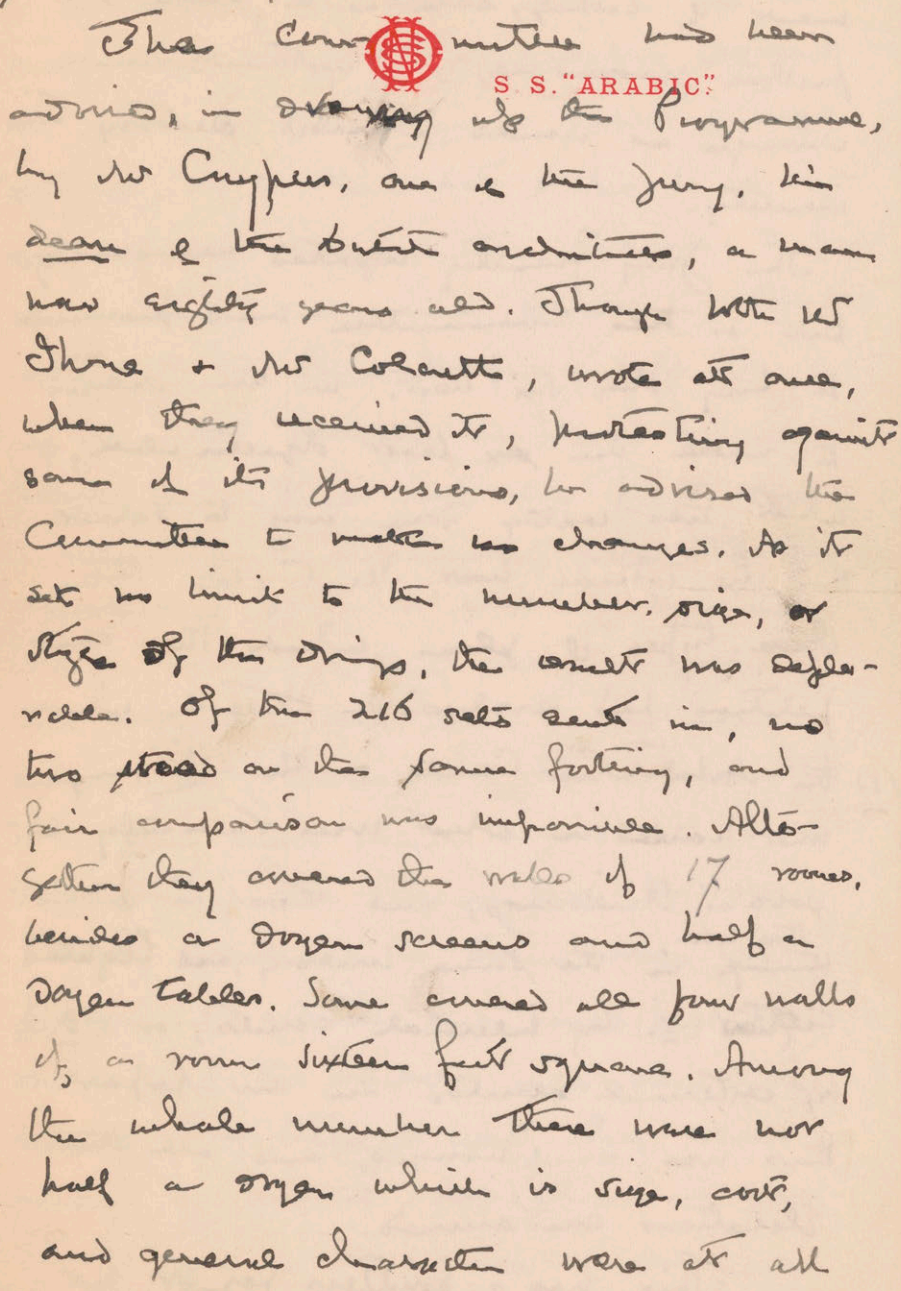 The Committee had been
S.S. "ARABIC."
advised, in drawing up the Programme,
by Mr Cuypers, one of the Jury, the
dean of the Dutch architects, a man
now eighty years old. Though both Mr
& Mr Colcutt, wrote at once,
when they received it, protesting against
some of its provisions, he advised the
Committee to make no changes. As it
set no limit to the number, size, or
style of the drawings, the result was deplo-
rable. Of the 216 sets sent in, no
two stood on the same footing, and
fair comparison was impossible. Alto-
gether they covered the walls of 17 rooms,
besides a dozen screens and half a
dozen tables. Some covered all four walls
of a room sixteen feet square. Among
the whole number there were not
half a dozen which in size, cost,
and general character were at all